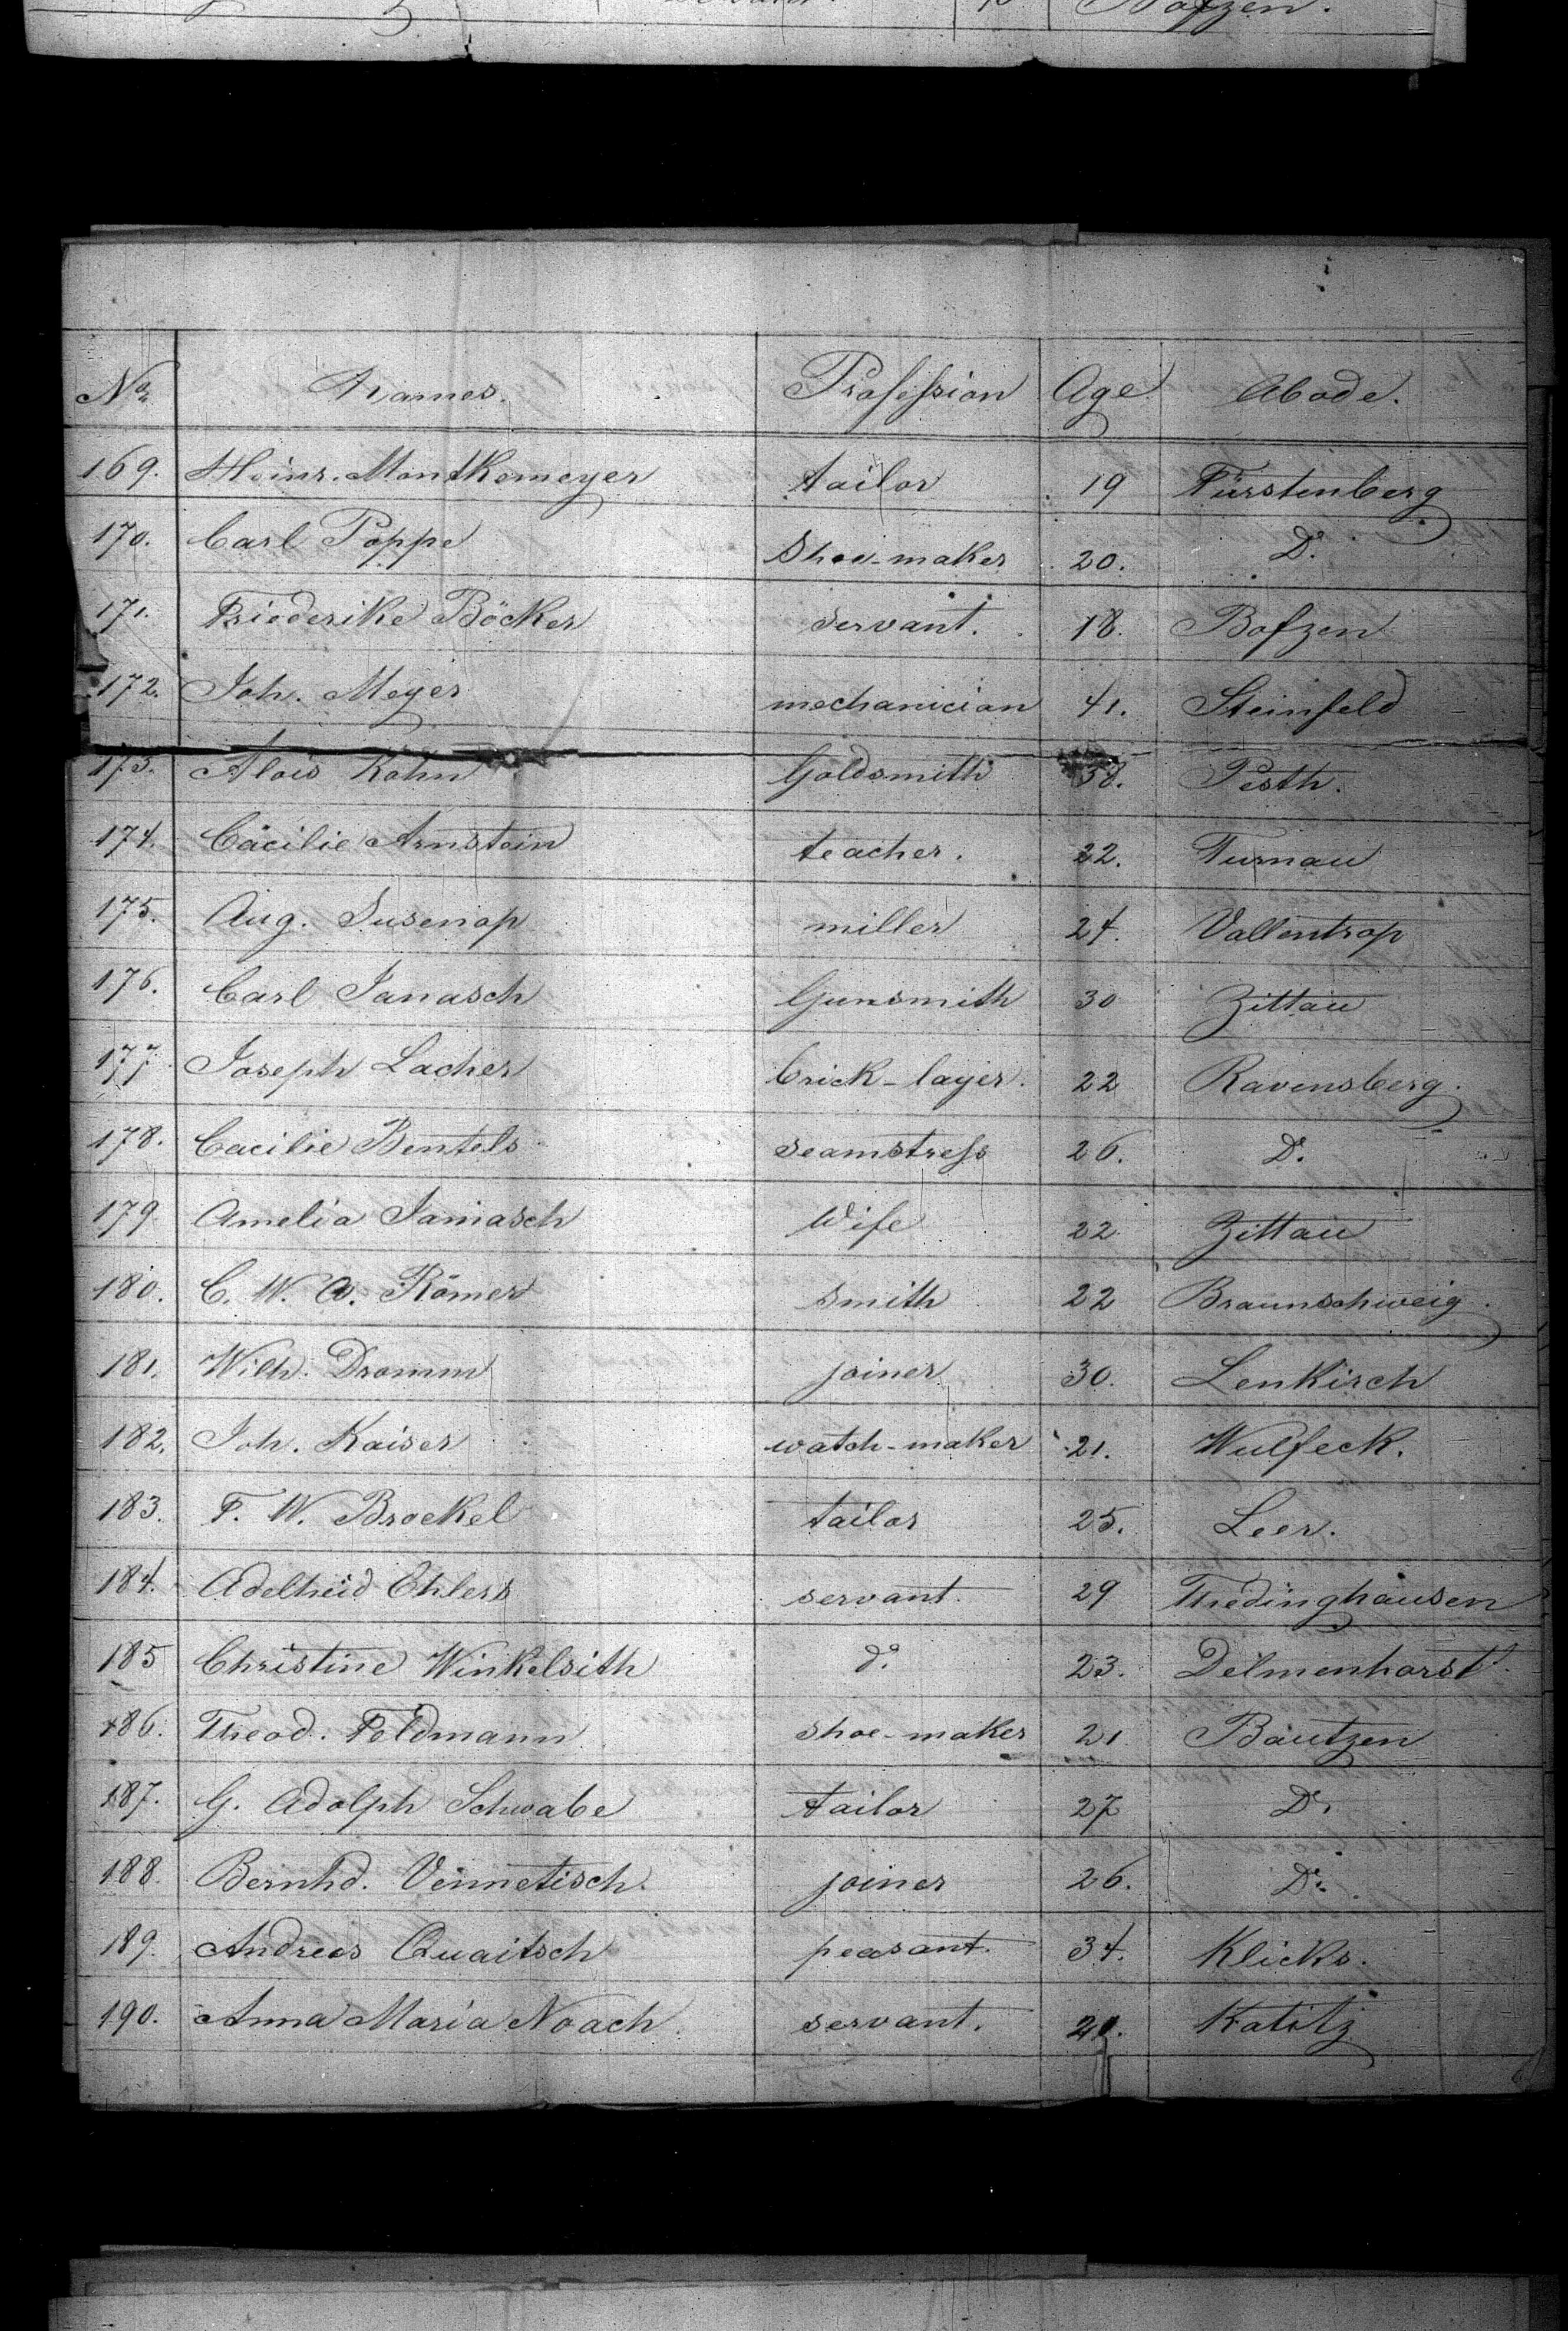 Bofzen.
No. Names. Profession Age Abode.
169. Heinr. Montkemeyer tailor 19 Fürstenberg
170. Carl Poppe Shoe-maker 20. Do.
171. Friederike Böcker servant. 18. Bofzen
172. Joh. Meyer mechanician 41. Steinfeld
173. Alois Kohn Goldsmith 38. Pesth.
174. Cäcilie Arnstein teacher. 22. Turnau
175. Aug. Susenop miller 24. Vallentrop
176. Carl Janasch Gunsmith 30 Zittau
177. Joseph Lacher brick-layer. 22 Ravensberg.
178. Cacilie Bentels seamstress 26. Do.
179. Amelia Janasch Wife 22 Zittau
180. C. W. A. Römer smith 22 Braunschweig.
181. Wilh. Dromm joiner 30. Lenkirch
182. Joh. Kaiser watch-maker 21. Wulfeck.
183. F. W. Brockel tailor 25. Leer.
184. Adelheid Ehlers servant. 29 Thedinghausen
185 Christine Winkelsith do. 23. Delmenhorst.
186. Theod. Feldmann shoe-maker 21 Bautzen
187. G. Adolph Schwabe tailor 27 Do.
188. Bernhd. Vennetisch. joiner 26. Do.
189. Andreas Quaitsch peasant. 34. Klicks.
190. Anna Maria Noach servant. Katitz